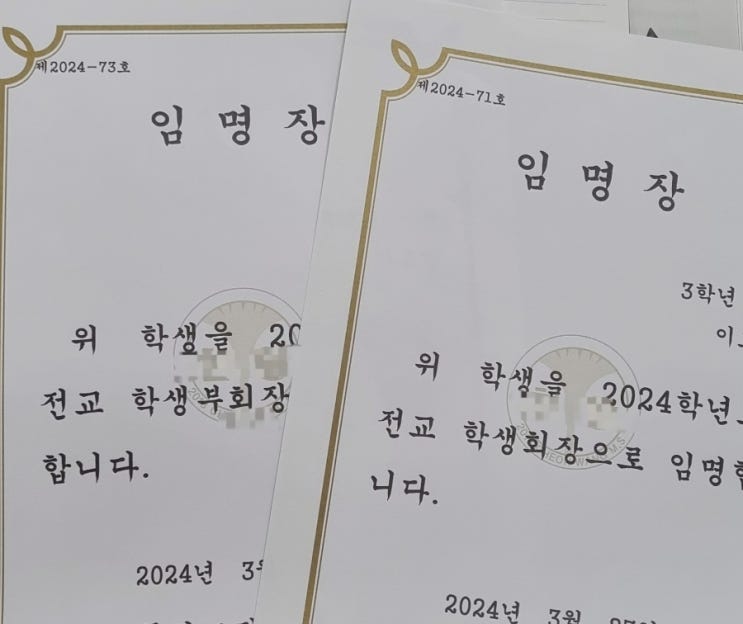 제2024-73호
임 명 장
위 학생을
전교 학생부회장
합니다.
2024년
제2024-71호
임 명 장
3학년
위 학생을 2024학년
전교 학생회장으로 임명합
니다.
2024년 3월